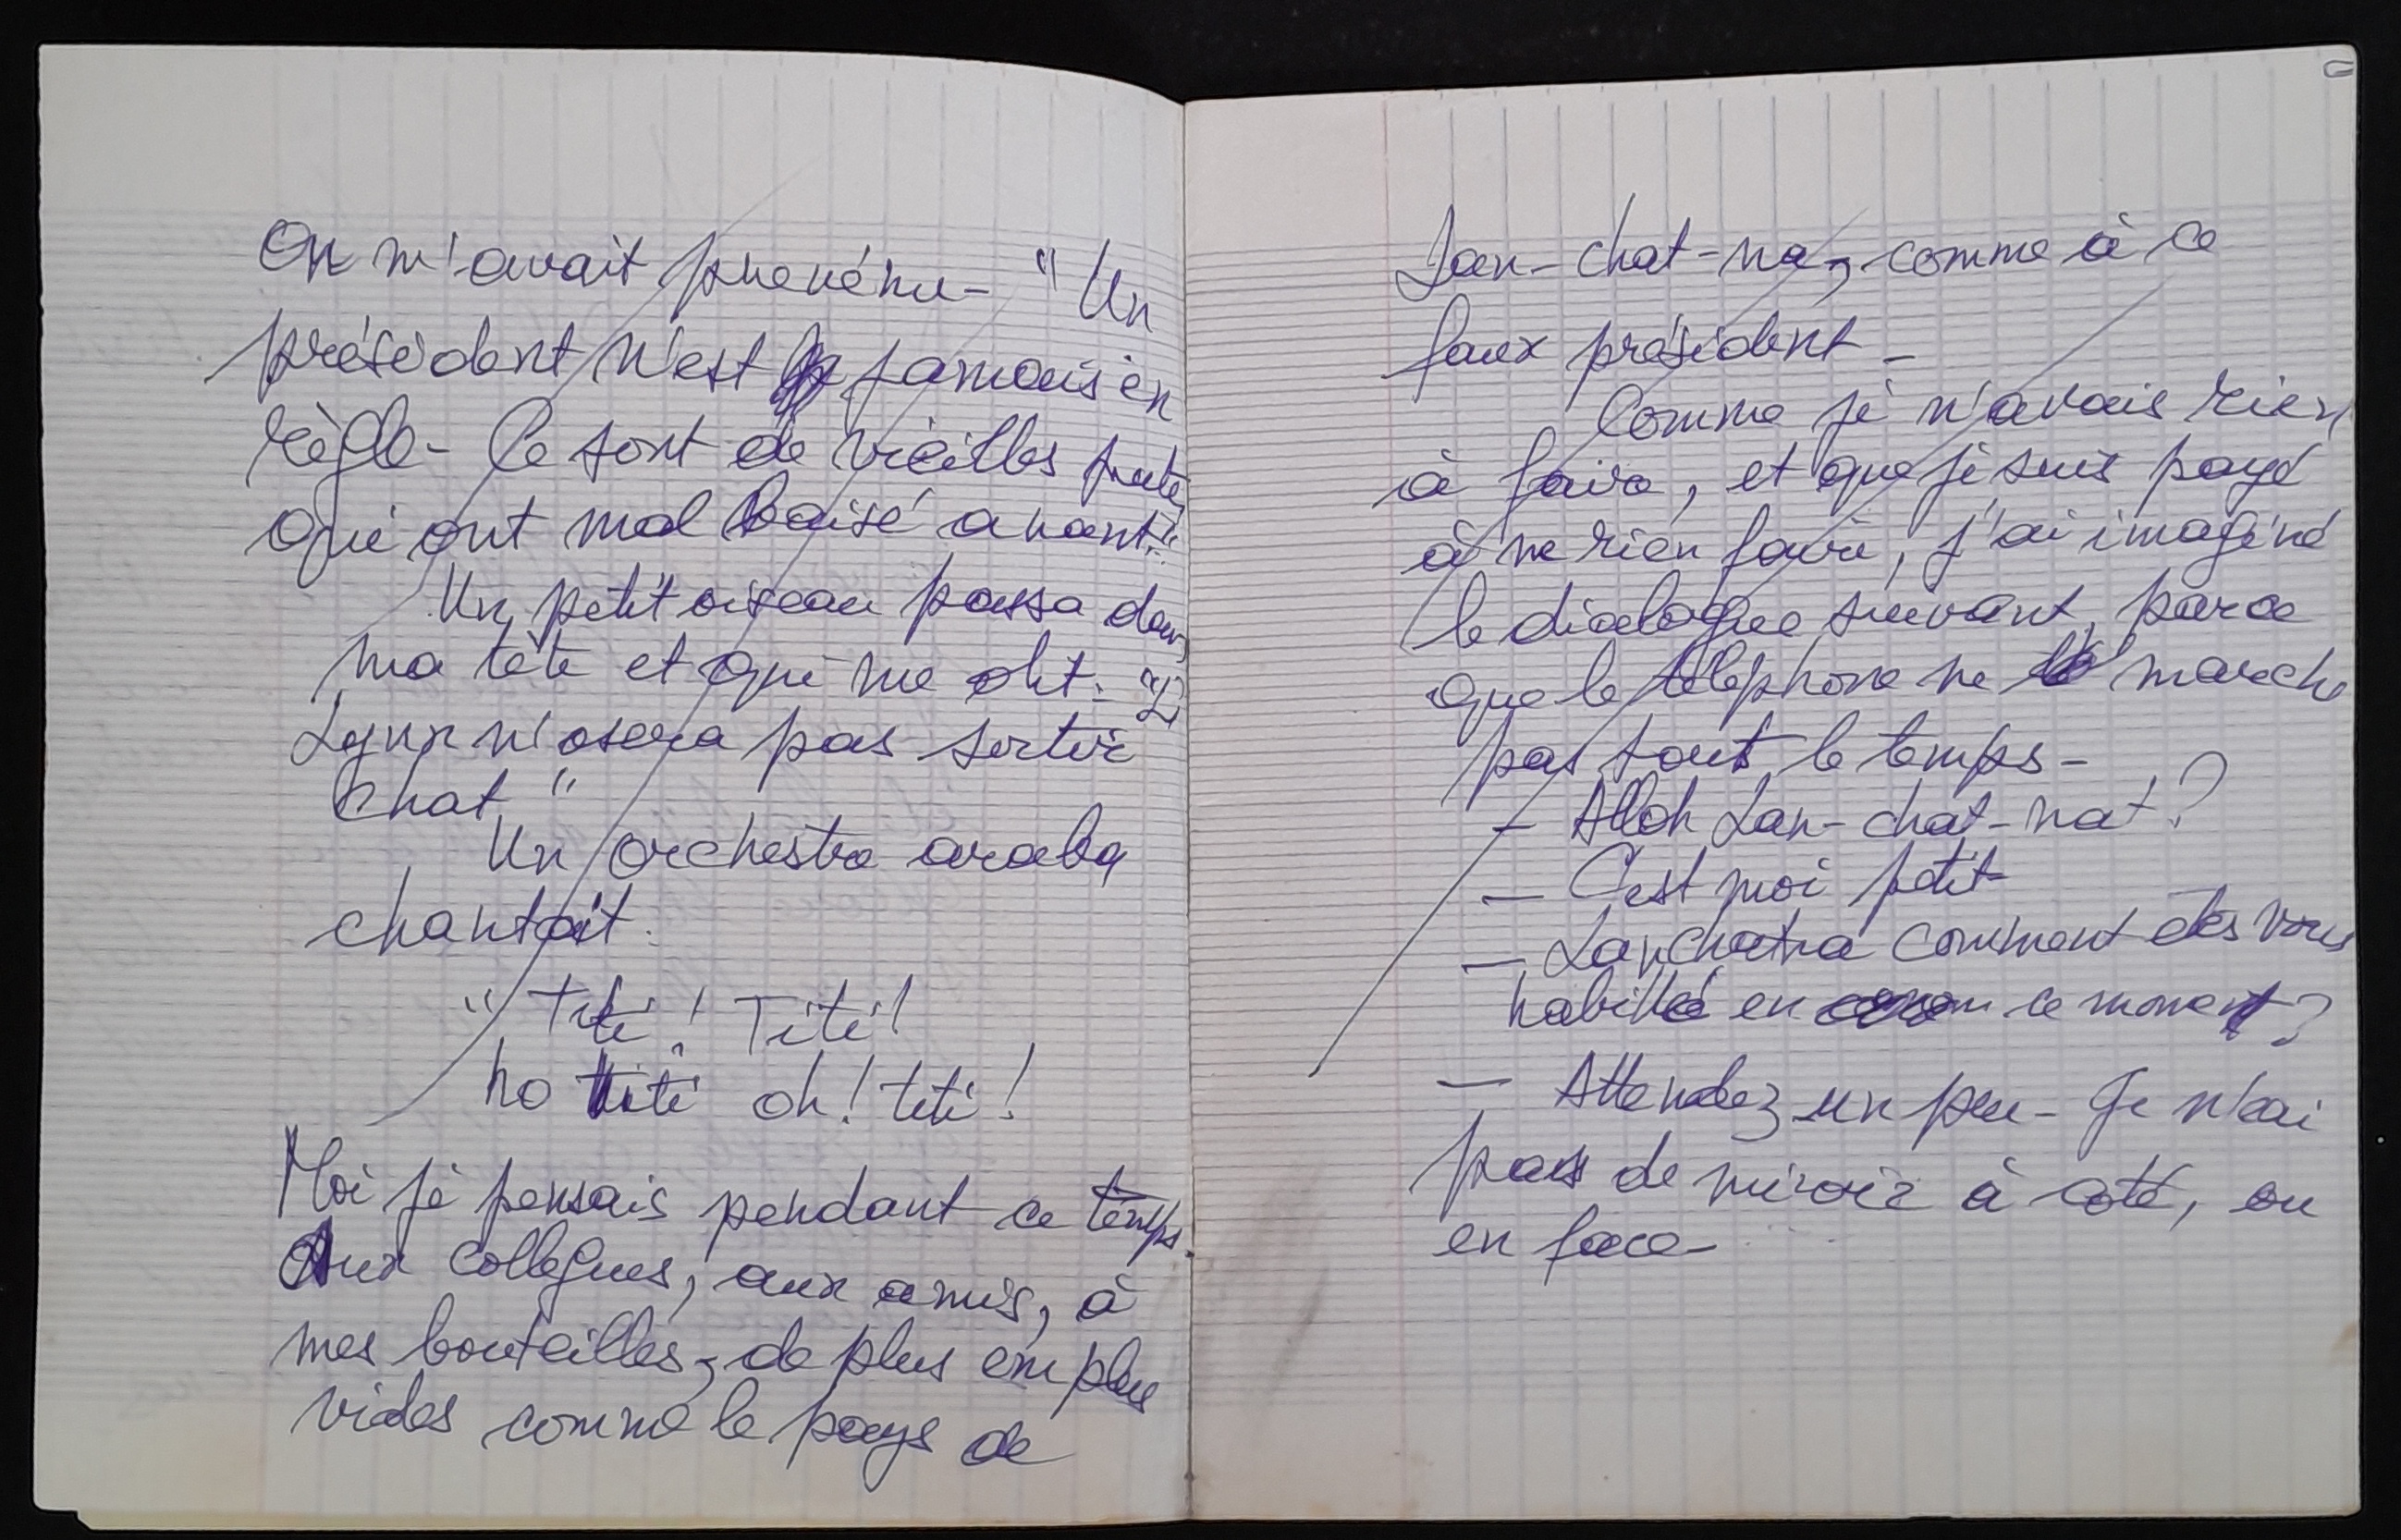 On m'avait prevénu - "Un
président n'est jamais en
règle - Ce sont de vieilles putes
qui ont mal baisé avant."
Un petit oiseau passa dans
ma tête et qui me dit. "Li
Lynx n'osera pas sortir
chat"
Un orchestre arabe
chantait.
"Titi! Titi!
ho titi oh! titi!
Moi je pensais pendant ce temps.
Aux collegues, aux amis, à
mes bouteilles, de plus en plus
vides comme le pays de
Lan-chat-na, comme à ce
faux président -
Comme je n'avais rien
à faire, et que je suis payé
à ne rien faire, j'ai imaginé
le dialogue suivant, parce
que le téléphone ne marche
pas tout le temps -
- Alloh Lan-chat-nat?
- C'est moi petit -
- Lanchatna comment êtes vous
habillé en ce moment?
- Attendez un peu - Je n'ai
pas de miroir à coté, ou
en face -